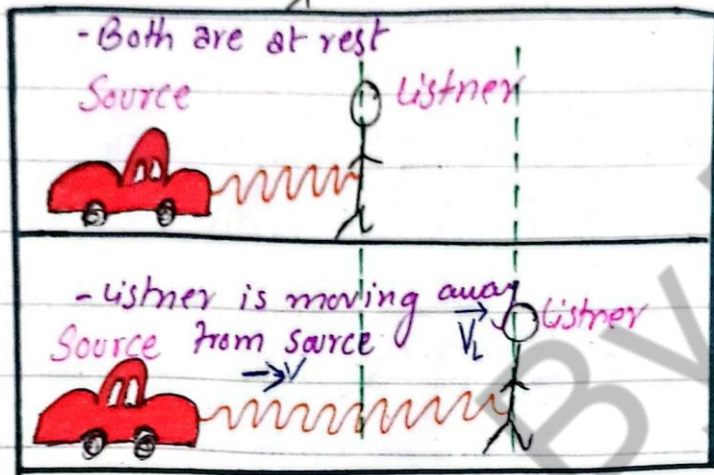 -Both are at rest
Source Listner
-Listner is moving away
Source from source V_L Listner
→V
BY